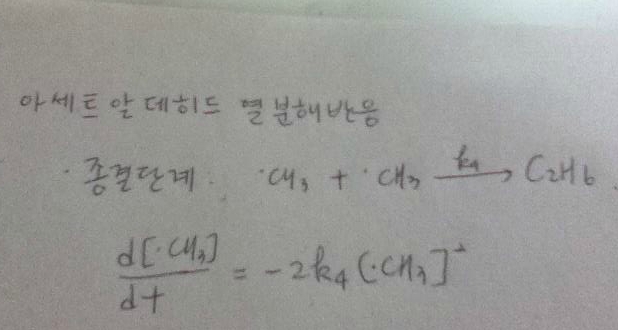 아세트알데히드 열분해반응
· 종결단계. ·CH₃ + ·CH₃ —k₄→ C₂H₆.
d[·CH₃]/dt = -2k₄[·CH₃]²